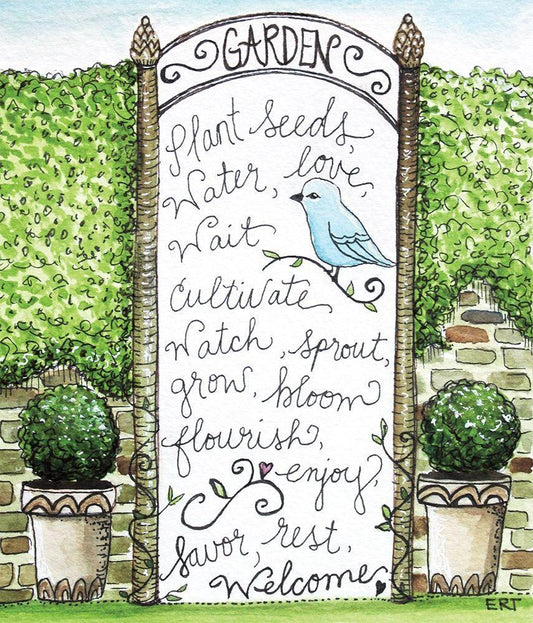 GARDEN
Plant seeds,
Water, love,
Wait
Cultivate
Watch, sprout,
grow, bloom
flourish,
enjoy,
Savor, rest,
Welcome
ERT